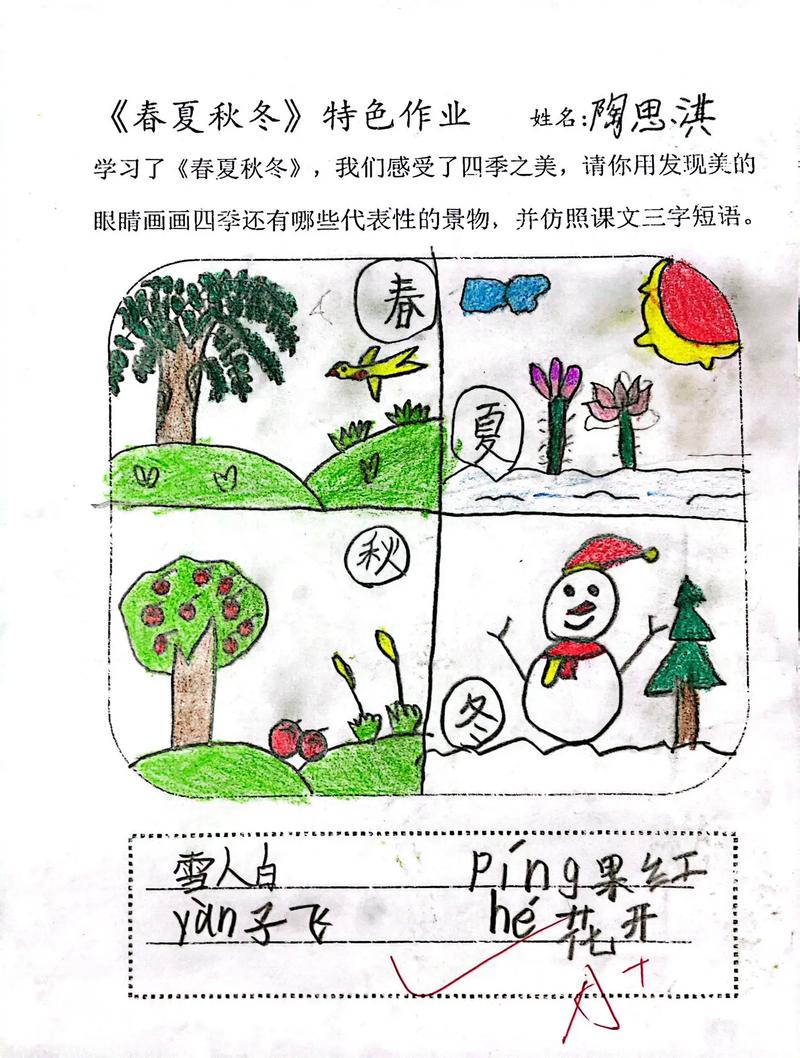 《春夏秋冬》特色作业 姓名:陶思淇
学习了《春夏秋冬》，我们感受了四季之美，请你用发现美的
眼睛画画四季还有哪些代表性的景物，并仿照课文三字短语。
春
夏
秋
冬
雪人白 píng果红
yàn子飞 hé花开
A+